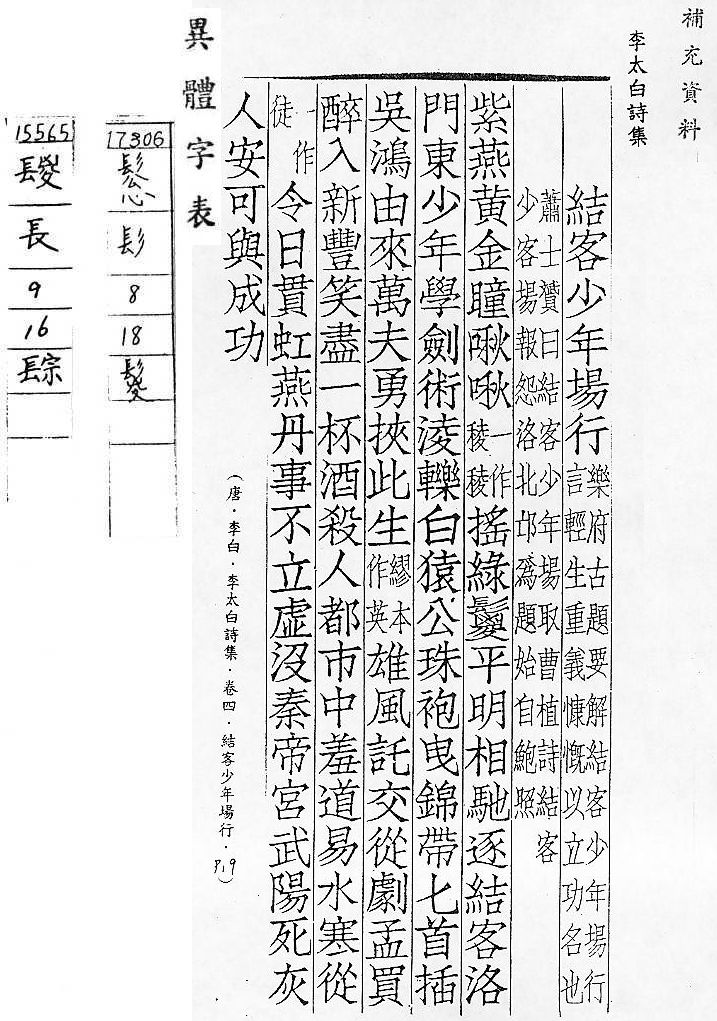 補充資料
李太白詩集
結客少年場行
樂府古題要解結客少年場行
言輕生重義慷慨以立功名也
蕭士贇曰結客少年場取曹植詩結客
少客場報怨洛北邙為題始自鮑照
紫燕黃金瞳啾啾一作稜稜搖綠鬉平明相馳逐結客洛
門東少年學劍術淩轢白猿公珠袍曳錦帶匕首插
吳鴻由來萬夫勇挾此生繆本作英雄風託交從劇孟買
醉入新豐笑盡一杯酒殺人都市中羞道易水寒從
一作徒令日貫虹燕丹事不立虛沒秦帝宮武陽死灰
人安可與成功
(唐．李白．李太白詩集．卷四．結客少年場行．P19)
異體字表
17306
髟
8
18
鬉
15565
長
9
16